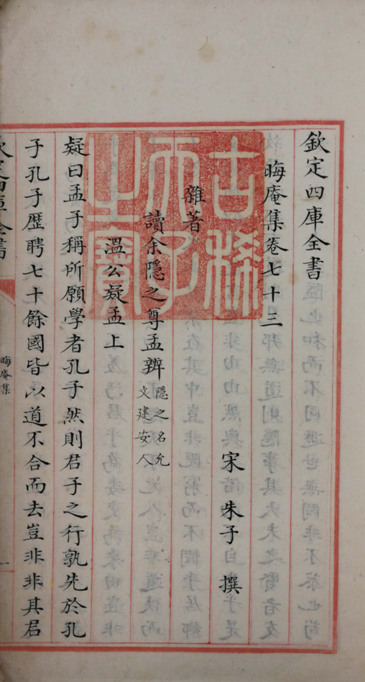 欽定四庫全書
晦庵集卷七十三
宋 朱子 撰
雜著
讀余隱之尊孟辨 隱之名允
文建安人
溫公疑孟上
疑曰孟子稱所願學者孔子然則君子之行孰先於孔
子孔子歷聘七十餘國皆以道不合而去豈非非其君
欽定四庫全書
晦庵集
古稀天子之寶